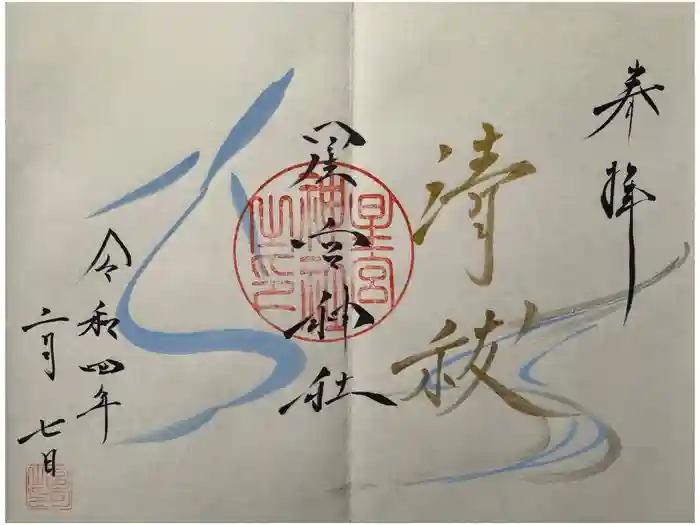 奉拝
清祓
星宮神社
星宮神社之印
令和四年
二月七日